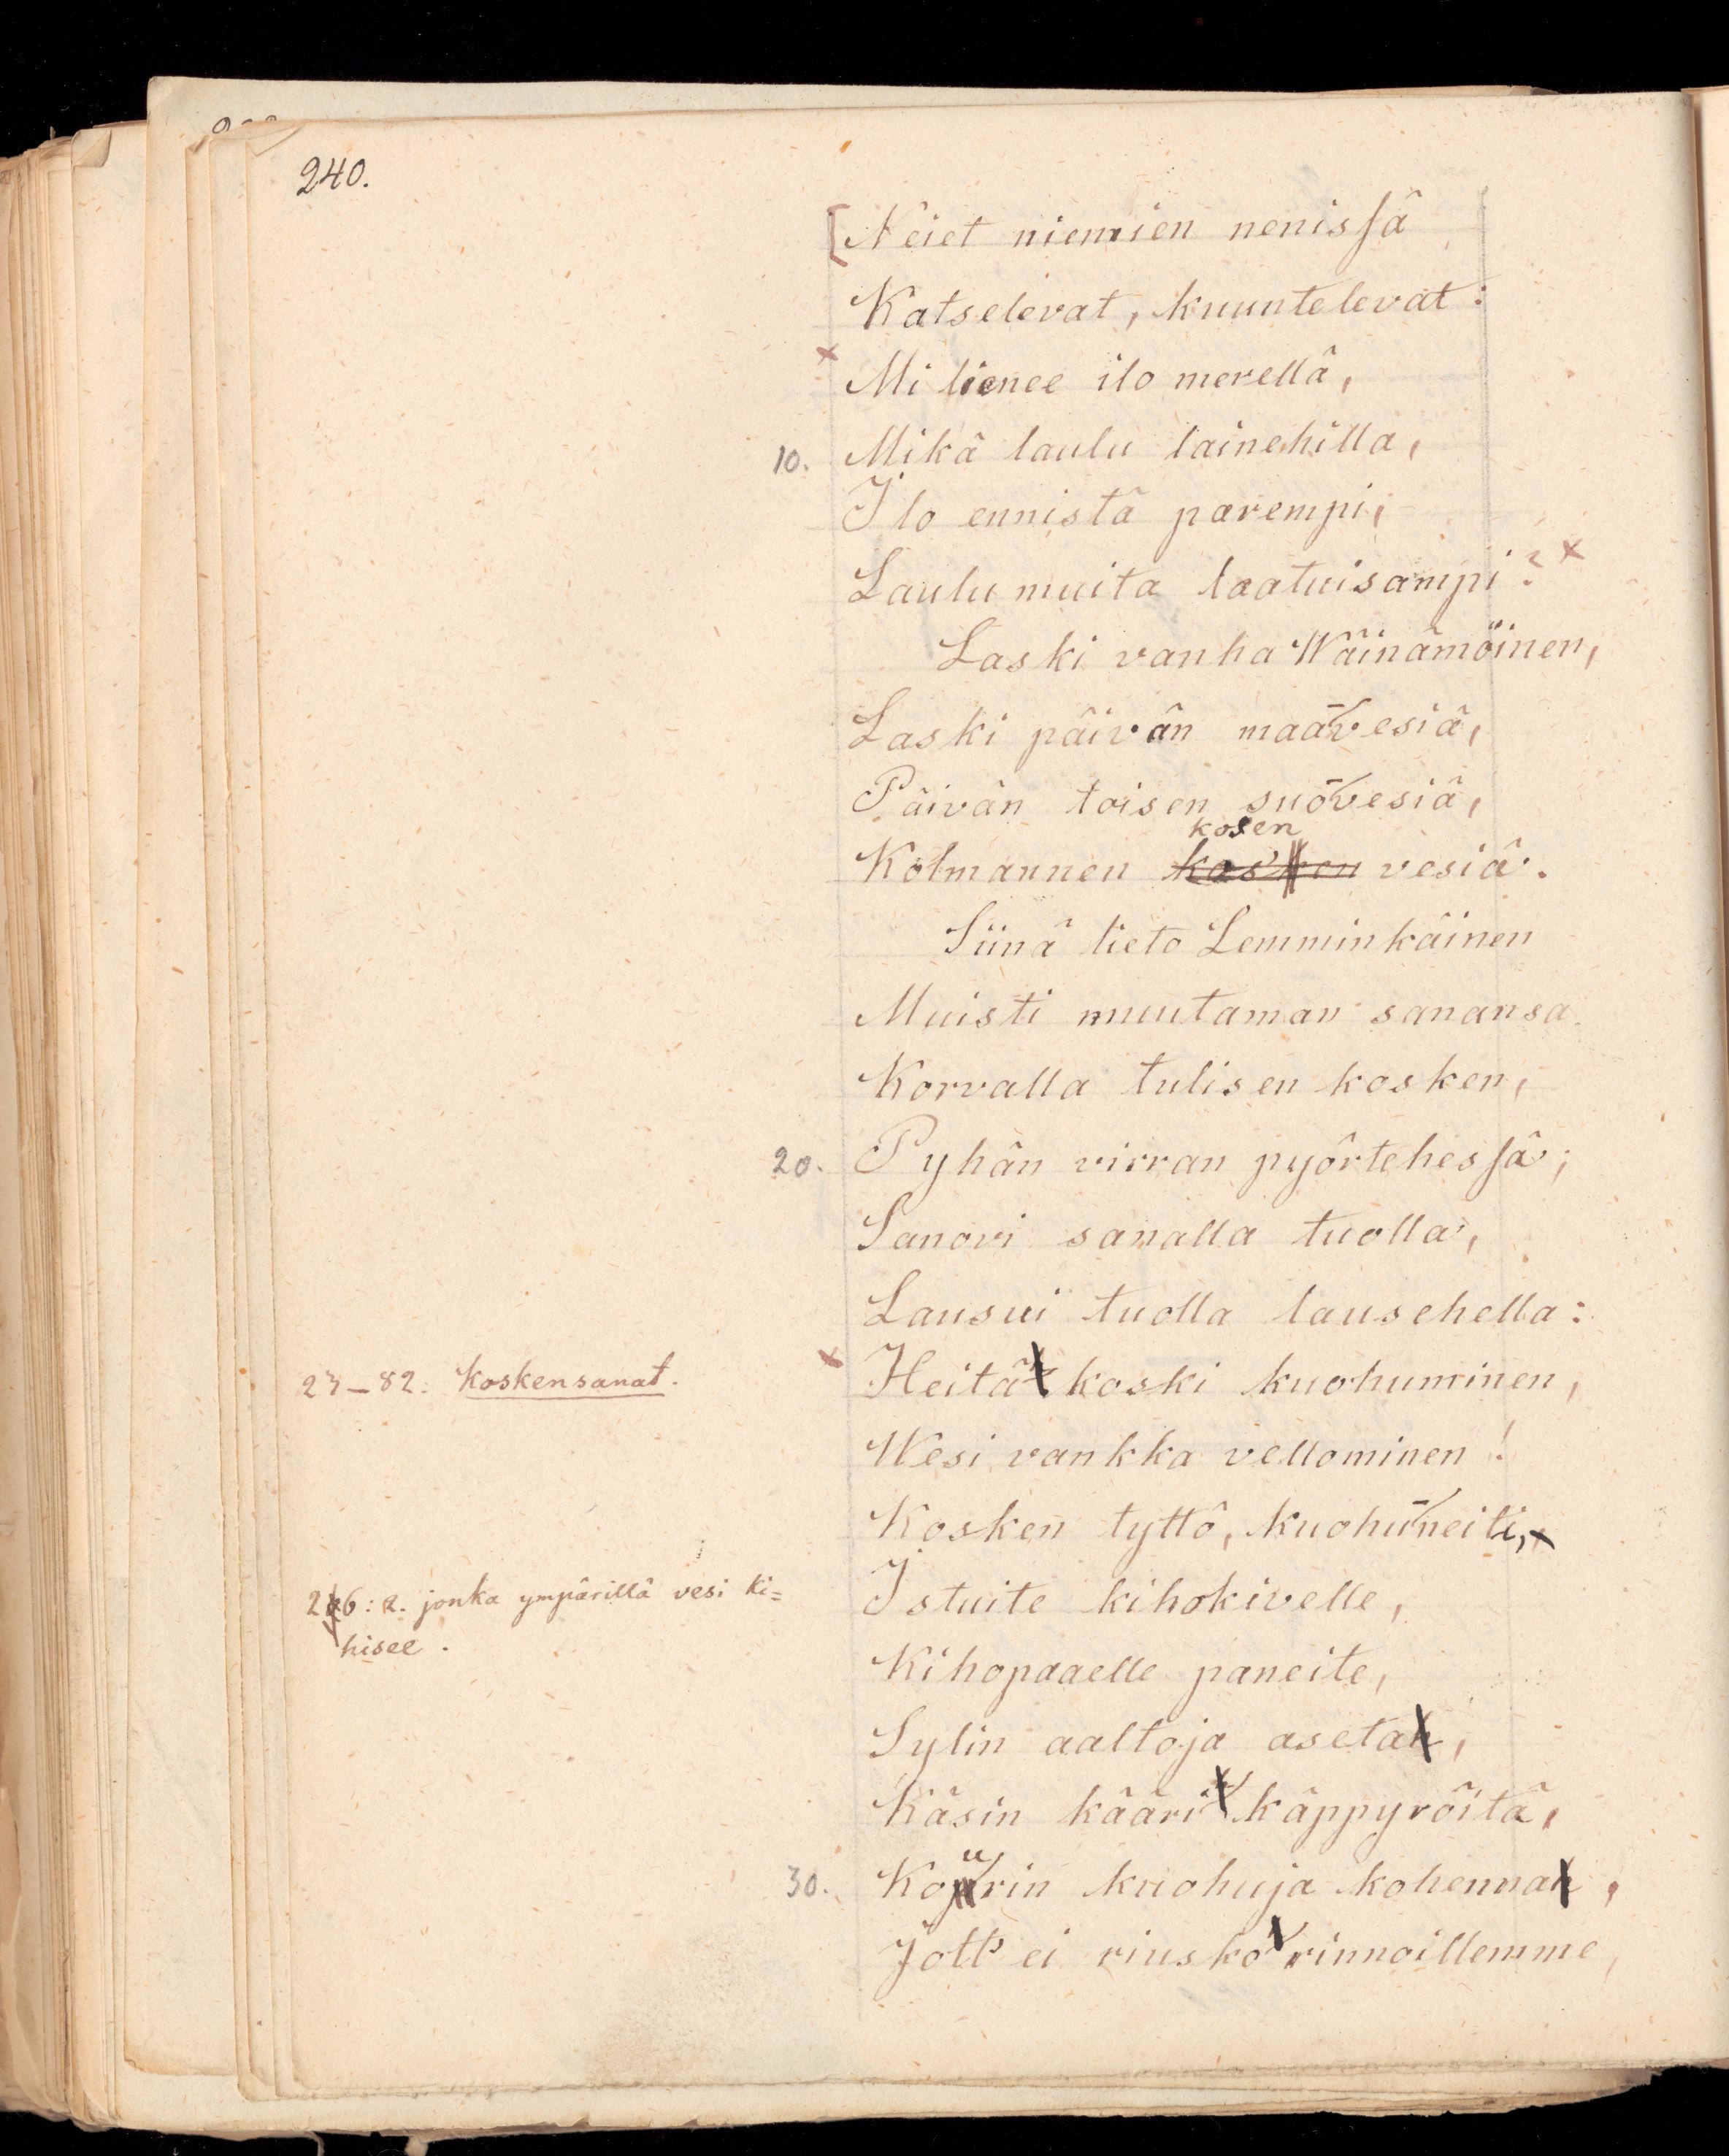 240.
Neiet niemien nenissä
Katselevat, kuuntelevat:
Mi lienee ilo merellä,
10. Mikä laulu lainehilla,
Ilo ennistä parempi,
Laulu muita laatuisampi?
Laski vanha Wäinämöinen,
Laski päivän maavesiä,
Päivän toisen suovesiä,
kosen
Kolmannen kosken vesiä.
Siinä lieto Lemminkäinen
Muisti muutaman sanansa
Korvalla tulisen kosken,
20. Pyhän virran pyörtehessä;
Sanovi sanalla tuolla,
Lausui tuolla lausehella:
23-82. Koskensanat.
Heitä koski kuohuminen,
Wesi vankka vellominen!
Kosken tyttö, kuohuneiti,
26: 2. jonka ympärillä vesi ki=
hisee.
Istuite kihokivelle,
Kihopaaelle paneite,
Sylin aaltoja aseta,
Käsin kääri käppyröitä,
30. Kourin kuohuja kohenna,
Jott' ei riusko rinnoillemme,